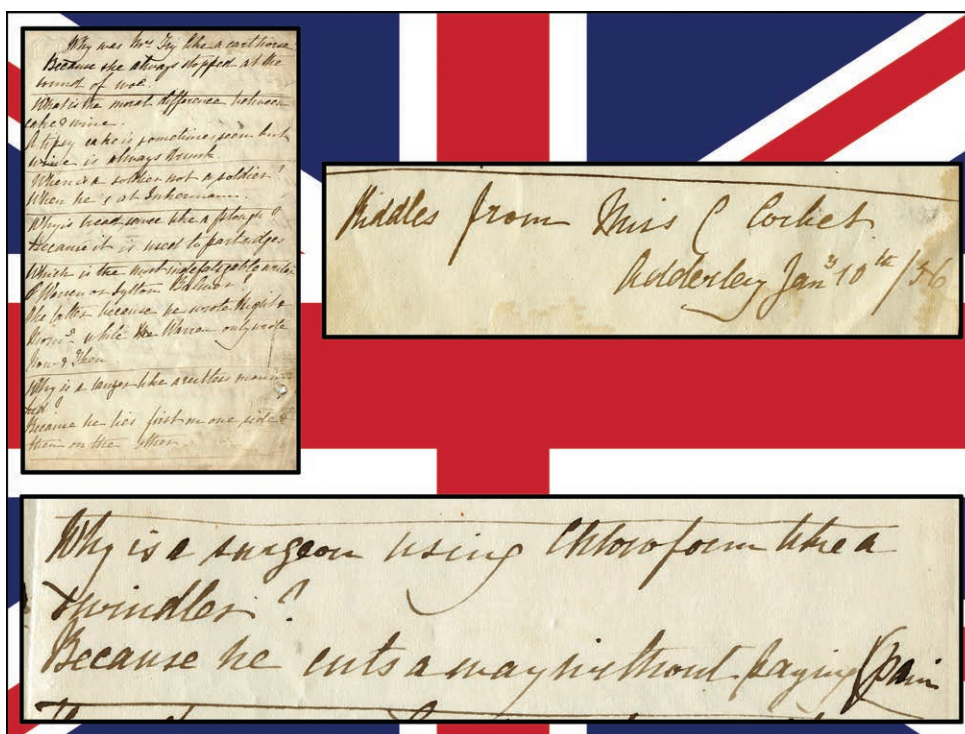 Why was Mrs Fry like a cart horse
Because she always stopped at the
sound of woe.
What is the moral difference between
cake & wine.
A tipsy cake is sometimes seen but
wine is always drunk
When is a soldier not a soldier?
When he's at Inkermann.
Why is bread sauce like a plough?
Because it is used to partridges
Which is the most indefatigable writer
Warren or Lytton Bulwer?
The latter because he wrote Night &
Morng while Warren only wrote
Now & Then
Why is a lawyer like a restless man in
bed?
Because he lies first on one side &
then on the other
Riddles from Miss C Corbet
Adderley Jany 10th/56
Why is a surgeon using Chloroform like a
swindler?
Because he cuts away without paying (pain